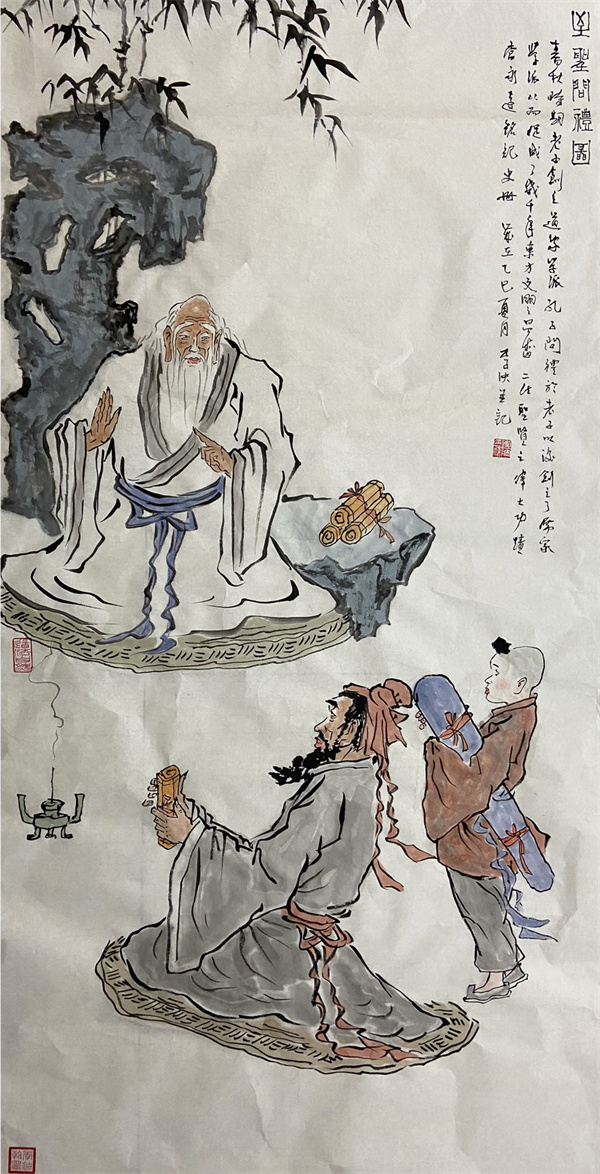 至聖問禮圖
春秋時期老子創立道家學派孔子問禮於老子以後創立了儒家
學派從而促成了幾千年東方文明之 二位聖賢之偉大功蹟
當永遠銘記史冊 歲在乙巳夏月 李 並記